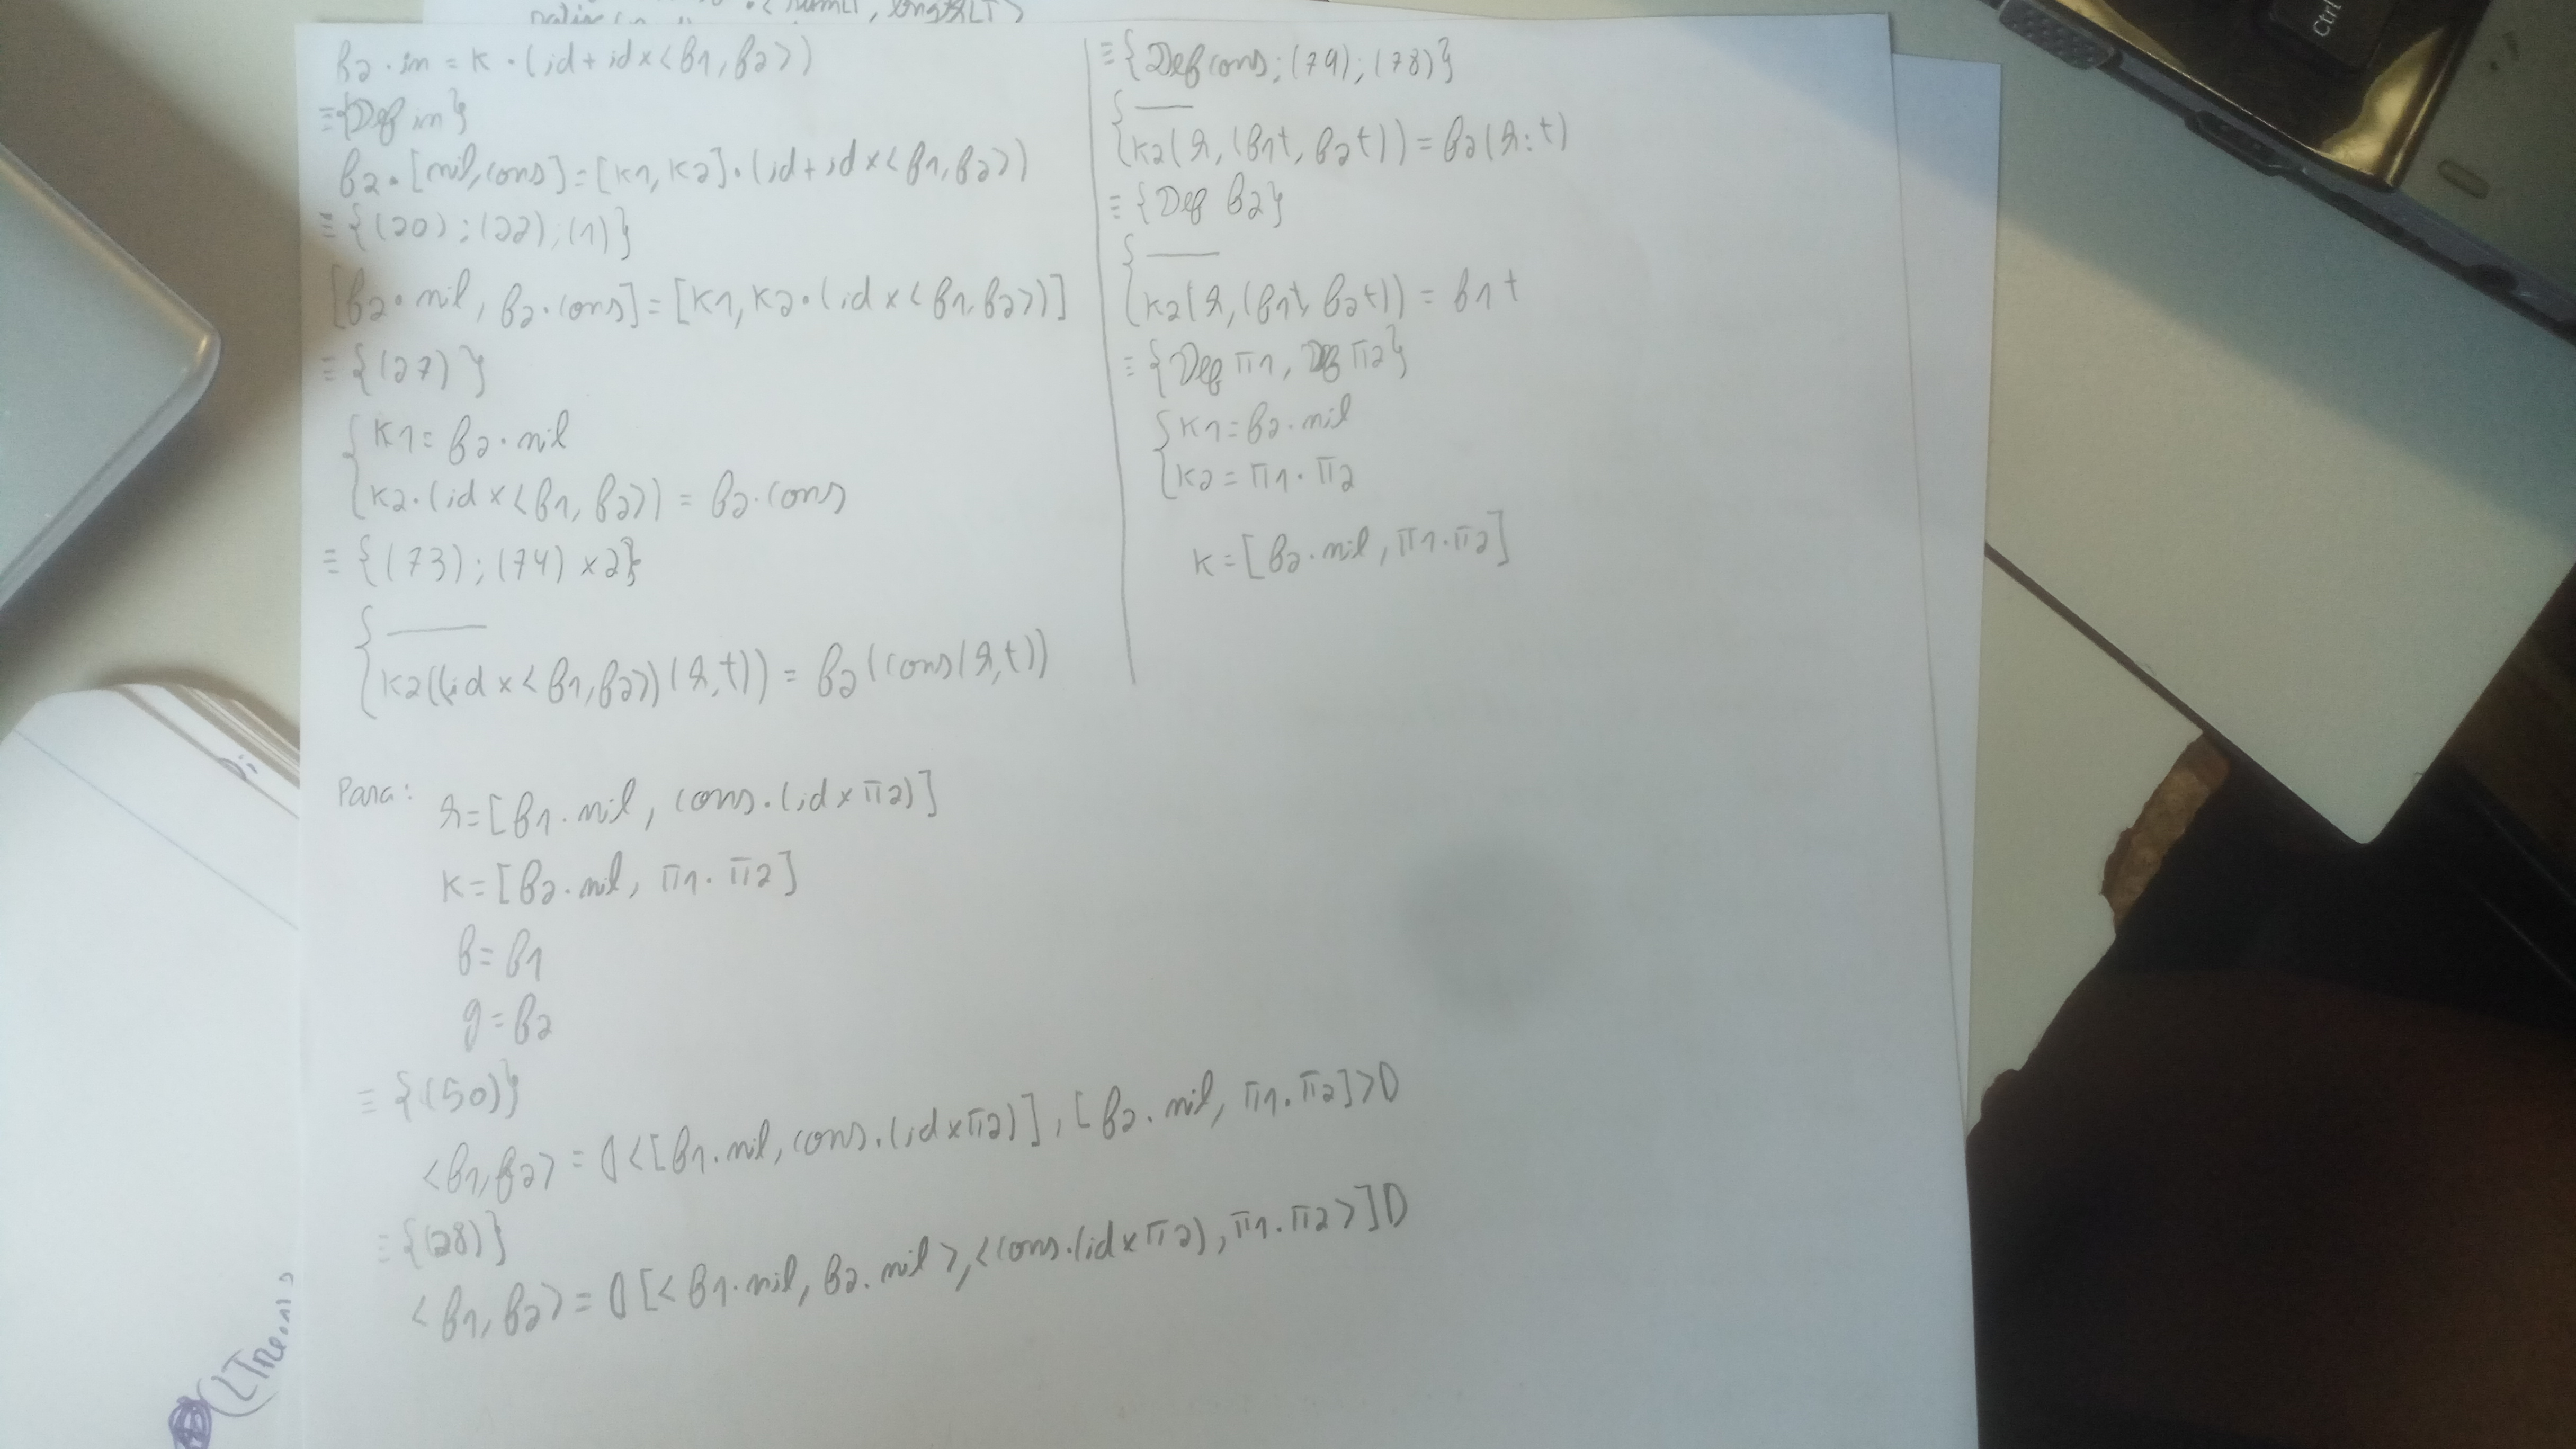 f2 . in = k . (id + id × <f1, f2>)
≡ {Def in}
f2 . [nil, cons] = [k1, k2] . (id + id × <f1, f2>)
≡ {(20); (22); (1)}
[f2 . nil, f2 . cons] = [k1, k2 . (id × <f1, f2>)]
≡ {(27)}
{ k1 = f2 . nil
{ k2 . (id × <f1, f2>) = f2 . cons
≡ {(73); (74) ×2}
{ ———
{ k2((id × <f1, f2>) (h, t)) = f2 (cons (h, t))
≡ {Def cons; (79); (78)}
{ ———
{ k2(h, (f1 t, f2 t)) = f2 (h : t)
≡ {Def f2}
{ ———
{ k2(h, (f1 t, f2 t)) = f1 t
≡ {Def π1, Def π2}
{ k1 = f2 . nil
{ k2 = π1 . π2
k = [f2 . nil, π1 . π2]
Para: h = [f1 . nil, cons . (id × π2)]
k = [f2 . nil, π1 . π2]
f = f1
g = f2
≡ {(50)}
<f1, f2> = (|<[f1 . nil, cons . (id × π2)], [f2 . nil, π1 . π2]>|)
≡ {(28)}
<f1, f2> = (|[<f1 . nil, f2 . nil>, <cons . (id × π2), π1 . π2>]|)
Ctrl